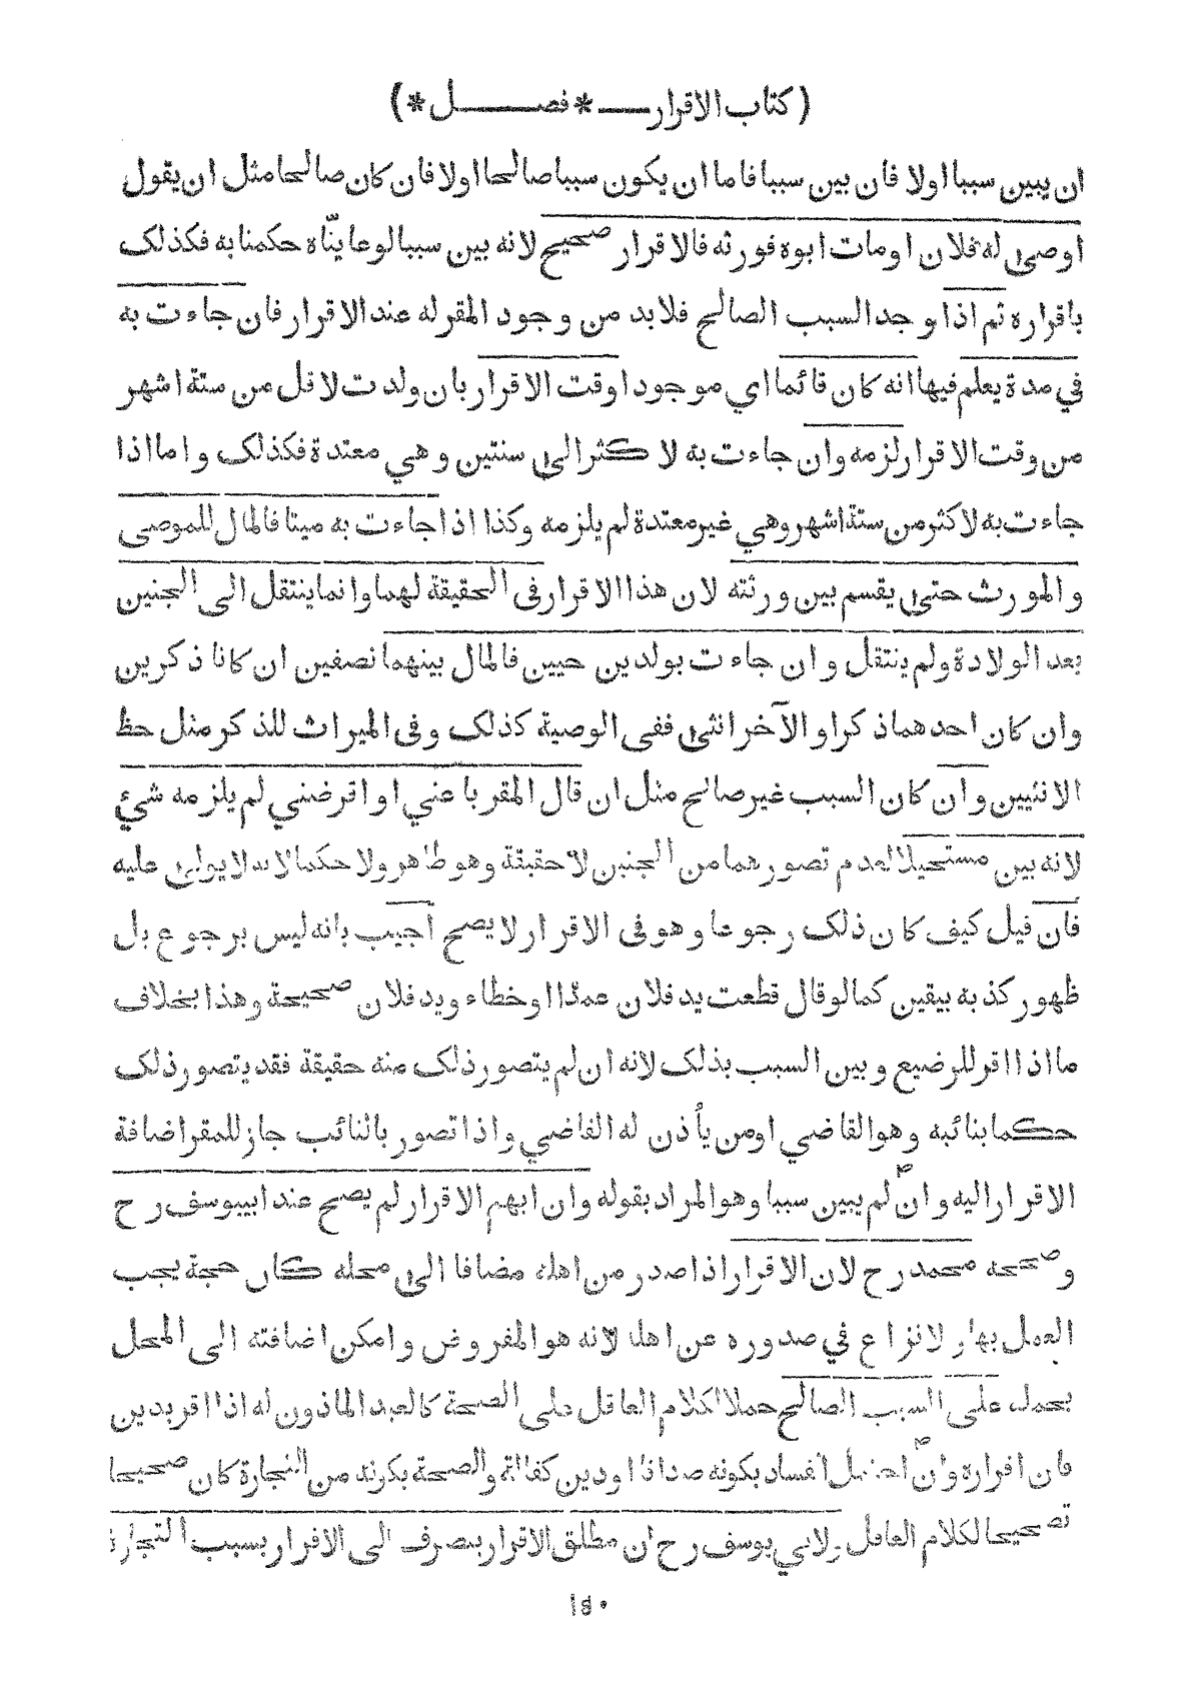 ( كتاب الاقرار ــ * فصــل * )
ان يبين سببا اولا فان بين سببا فاما ان يكون سببا صالحا اولا فان كان صالحا مثل ان يقول
اوصى له فلان او مات ابوه فورثه فالاقرار صحيح لانه بين سببا لو عاينّاه حكمنا به فكذلك
باقراره ثم اذا وجد السبب الصالح فلابد من وجود المقر له عند الاقرار فان جاءت به
في مدة يعلم فيها انه كان قائما اي موجودا وقت الاقرار بان ولدت لاقل من ستة اشهر
من وقت الاقرار لزمه وان جاءت به لا كثر الى سنتين وهي معتدة فكذلك واما اذا
جاءت به لاكثر من ستة اشهر وهي غير معتدة لم يلزمه وكذا اذا جاءت به ميتا فالمال للموصى
والمورث حتى يقسم بين ورثته لان هذا الاقرار فى الحقيقة لهما وانما ينتقل الى الجنين
بعد الولادة ولم ينتقل وان جاءت بولدين حيين فالمال بينهما نصفين ان كانا ذكرين
وان كان احدهما ذكرا و الآخر انثى ففى الوصية كذلك وفى الميراث للذكر مثل حظ
الانثيين وان كان السبب غير صالح مثل ان قال المقر باعني او اقرضني لم يلزمه شئ
لانه بين مستحيلا لعدم تصورهما من الجنين لا حقيقة وهو ظاهر ولا حكما لانه لا يولى عليه
فان قيل كيف كان ذلك رجوعا وهو فى الاقرار لا يصح اجيب بانه ليس برجوع بل
ظهور كذبه بيقين كما لو قال قطعت يد فلان عمدا او خطاء ويد فلان صحيحة وهذا بخلاف
ما اذا اقر للرضيع وبين السبب بذلك لانه ان لم يتصور ذلك منه حقيقة فقد يتصور ذلك
حكما بنائبه وهو القاضي او من يأذن له القاضي واذا تصور بالنائب جاز للمقر اضافة
الاقرار اليه وان لم يبين سببا وهو المراد بقوله وان ابهم الاقرار لم يصح عند ابيوسف رح
وصححه محمد رح لان الاقرار اذا صدر من اهله مضافا الى محله كان حجة يجب
العمل بها ولا نزاع في صدوره عن اهله لانه هو المفروض وامكن اضافته الى المحل
بحمله على السبب الصالح حملا لكلام العاقل على الصحة كالعبد الماذون له اذا اقر بدين
فان اقراره وان احتمل الفساد بكونه صداقا او دين كفالة والصحة بكونه من التجارة كان صحيحا
تصحيحا لكلام العاقل ولابي يوسف رح ان مطلق الاقرار ينصرف الى الاقرار بسبب التجارة
۱۴۰